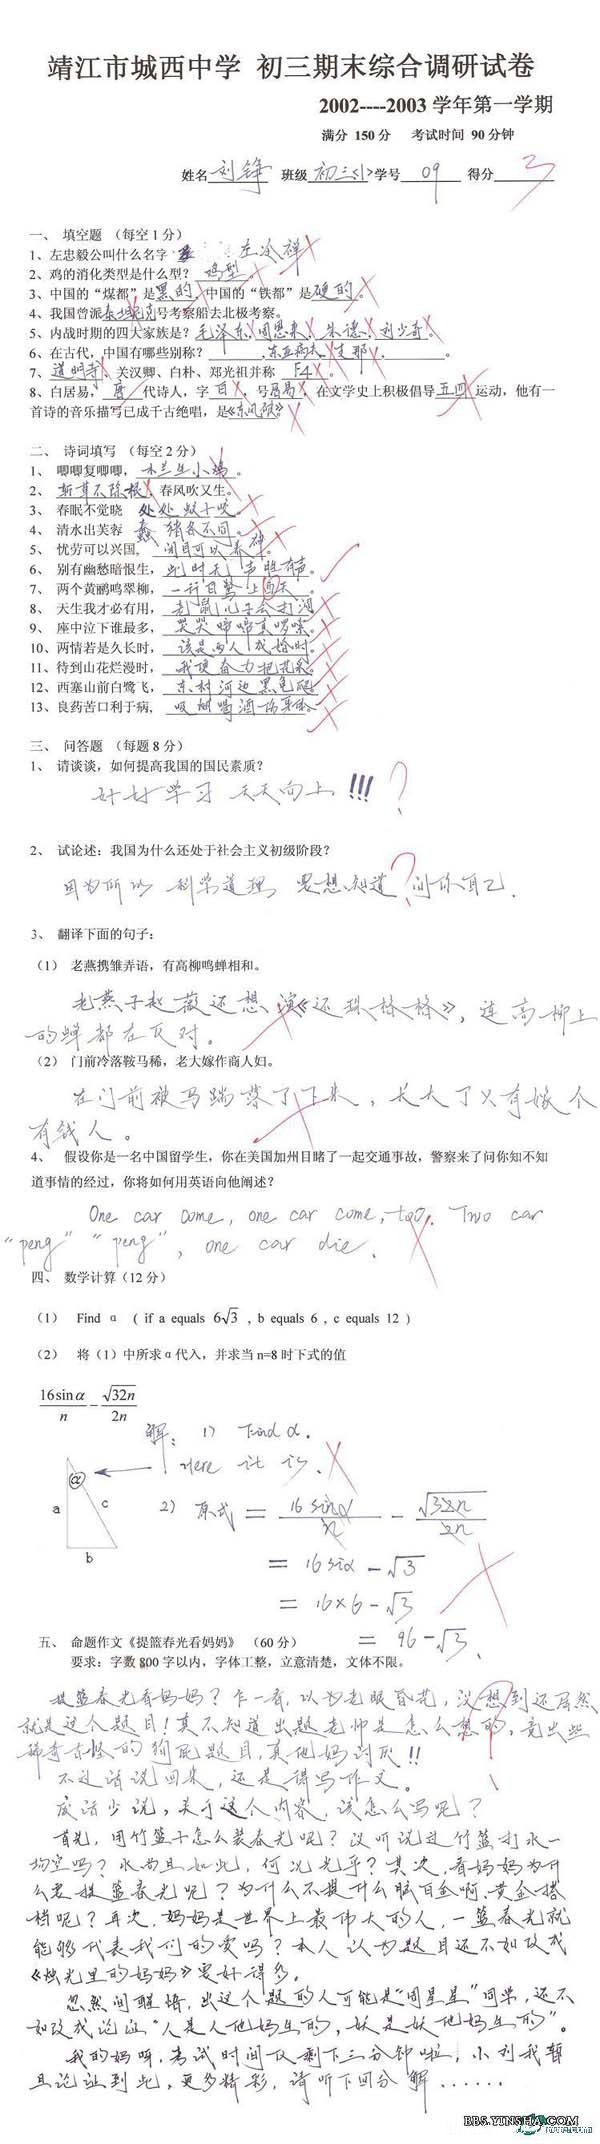 靖江市城西中学 初三期末综合调研试卷
2002----2003 学年第一学期
满分 150 分 考试时间 90 分钟
姓名 刘铮 班级 初三<1> 学号 09 得分 3
一、 填空题 （每空 1 分）
1、左忠毅公叫什么名字 左冷禅
2、鸡的消化类型是什么型？ 鸡型 。
3、中国的“煤都”是黑的，中国的“铁都”是硬的。
4、我国曾派泰坦尼克号考察船去北极考察。
5、内战时期的四大家族是？毛泽东、周恩来、朱德、刘少奇。
6、在古代，中国有哪些别称？ 、东亚病夫、支那、 。
7、道明寺、关汉卿、白朴、郑光祖并称 F4 。
8、白居易， 唐 代诗人，字 白 ，号 居易 ，在文学史上积极倡导 五四 运动，他有一
首诗的音乐描写已成千古绝唱，是《东风破》。
二、 诗词填写 （每空 2 分）
1、 唧唧复唧唧， 木兰生小鸡 。
2、 斩草不除根 ，春风吹又生。
3、 春眠不觉晓 处处蚊子咬 。
4、 清水出芙蓉 蠢猪各不同 。
5、 忧劳可以兴国， 闭目可以养神 。
6、 别有幽愁暗恨生， 此时无声胜有声 。
7、 两个黄鹂鸣翠柳， 一行白鹭上西天 。
8、 天生我才必有用， 老鼠儿子会打洞
9、 座中泣下谁最多， 哭哭啼啼真啰嗦 。
10、两情若是久长时， 该是两人成婚时 。
11、待到山花烂漫时， 我便奋力把花采
12、西塞山前白鹭飞， 东村河边黑龟爬 。
13、良药苦口利于病， 吸烟喝酒伤身体
三、 问答题 （每题 8 分）
1、 请谈谈，如何提高我国的国民素质？
好好学习 天天向上 !!! ?
2、 试论述：我国为什么还处于社会主义初级阶段？
因为所以 科学道理 要想知道 ? 问你自己 .
3、 翻译下面的句子：
（1） 老燕携雏弄语，有高柳鸣蝉相和。
老燕子赵薇还想演《还珠格格》，连高柳上
的蝉都在反对。
（2） 门前冷落鞍马稀，老大嫁作商人妇。
在门前被马踢落了下来，长大了又有嫁个
有钱人。
4、 假设你是一名中国留学生，你在美国加州目睹了一起交通事故，警察来了问你知不知
道事情的经过，你将如何用英语向他阐述？
One car come, one car come, too. Two car
“peng” “peng”, one car die.
四、 数学计算（12 分）
（1） Find α （ if a equals 6√3 , b equals 6 , c equals 12 ）
（2） 将（1）中所求α代入，并求当 n=8 时下式的值
16sinα/n − √32n/2n
解： 1) Find α.
Here it is.
α
a c
b
2) 原式 = 16 sinα/n − √32n/2n
= 16 siα − √3
= 16×6 − √3
= 96 − √3 .
五、 命题作文《提篮春光看妈妈》 （60 分）
要求：字数 800 字以内，字体工整，立意清楚，文体不限。
提篮春光看妈妈？乍一看，以为老眼昏花，没想到还居然
就是这个题目！真不知道出题老师是怎么想的，竟出些
稀奇古怪的狗屁题目，真他妈讨厌!!
不过话说回来，还是得写作文。
废话少说，关于这个内容，该怎么写呢？
首先，用竹篮子怎么装春光呢？没听说过竹篮打水一
场空吗？水尚且如此，何况光乎？其次，看妈妈为什
么要提篮春光呢？为什么不提什么脑白金啊、黄金搭
档呢？再次，妈妈是世界上最伟大的人，一篮春光就
能够代表我们的爱吗？本人认为题目还不如改成
《烛光里的妈妈》要好得多。
忽然间醒悟，出这个题的人可能是“周星星”同学，还不
如改成论证“人是人他妈生的，妖是妖他妈生的”。
我的妈呀，考试时间仅剩下三分钟啦，小刘我暂
且论证到此，更多精彩，请听下回分解......
BBS.YINSHA.COM